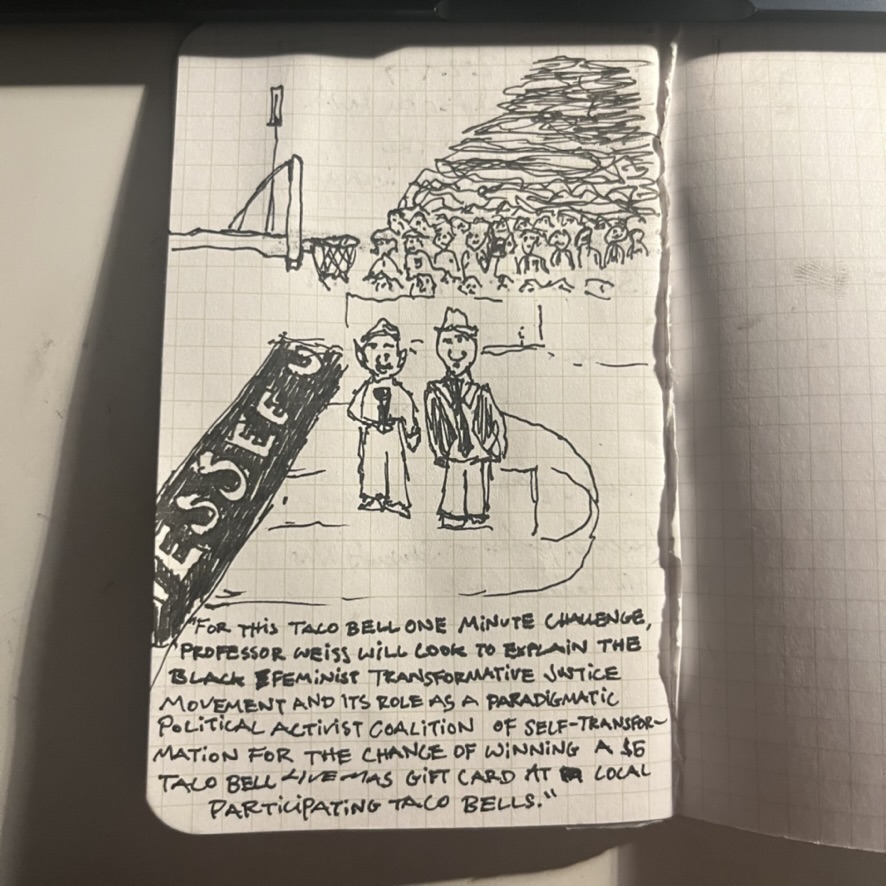 ESSEE
"FOR THIS TACO BELL ONE MINUTE CHALLENGE,
PROFESSOR WEISS WILL LOOK TO EXPLAIN THE
BLACK FEMINIST TRANSFORMATIVE JUSTICE
MOVEMENT AND ITS ROLE AS A PARADIGMATIC
POLITICAL ACTIVIST COALITION OF SELF-TRANSFOR-
MATION FOR THE CHANCE OF WINNING A $5
TACO BELL LIVE MAS GIFT CARD AT LOCAL
PARTICIPATING TACO BELLS."